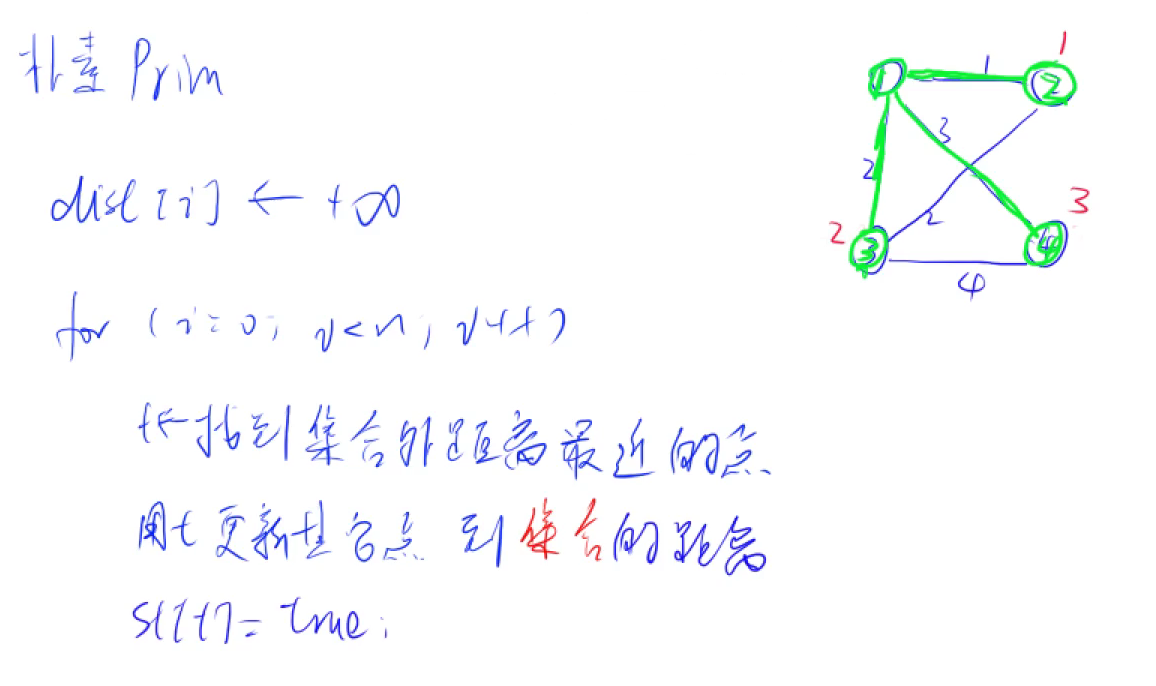 朴素 Prim
dist[i] ← +∞
for (i=0; i<n; i++)
t←找到集合外距离最近的点
用t更新其它点 到集合的距离
st[t]=true;
1
1
1
2
3
2
2
3
2
3
4
4